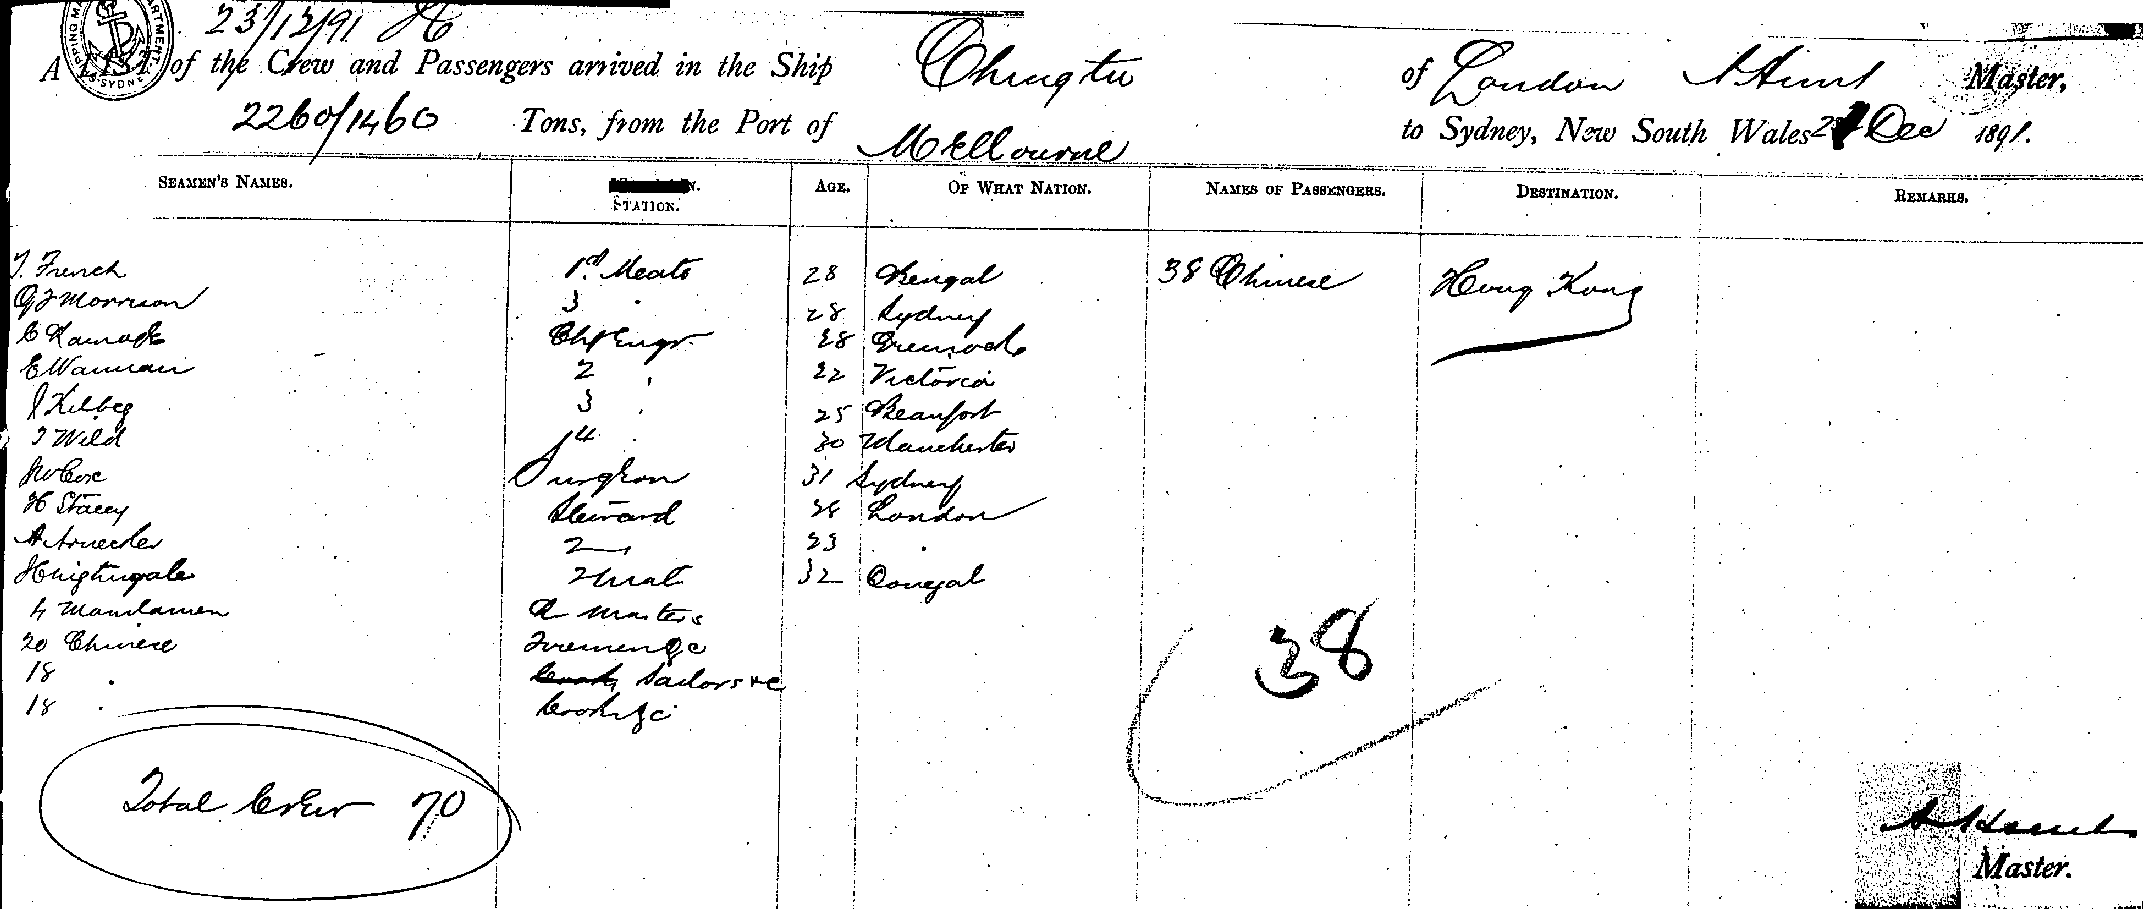 23/12/91
A LIST of the Crew and Passengers arrived in the Ship Chingtu of London A Hunt Master,
2260/1460 Tons, from the Port of Melbourne to Sydney, New South Wales Dec 1891.
SEAMEN'S NAMES. STATION. AGE. OF WHAT NATION. NAMES OF PASSENGERS. DESTINATION. REMARKS.
T. French 1st Mate 28 Bengal 38 Chinese Hong Kong
G F Morrison 3 " 28 Sydney
C Chf Engr. 28 Greenock
E Wannan 2 " 22 Victoria
J Kilbeg 3 " 25 Beaufort
T Wild 4 " 30 Manchester
Cox Surgeon 31 Sydney
H Stacey Steward 28 London
A 2 " 23 "
H Nightingale 32 Donegal
4 Manilamen Qr Masters
20 Chinese Firemen &c
18 " Sailors &c
18 " Cooks &c
38
Total Crew 70
A Hunt
Master.